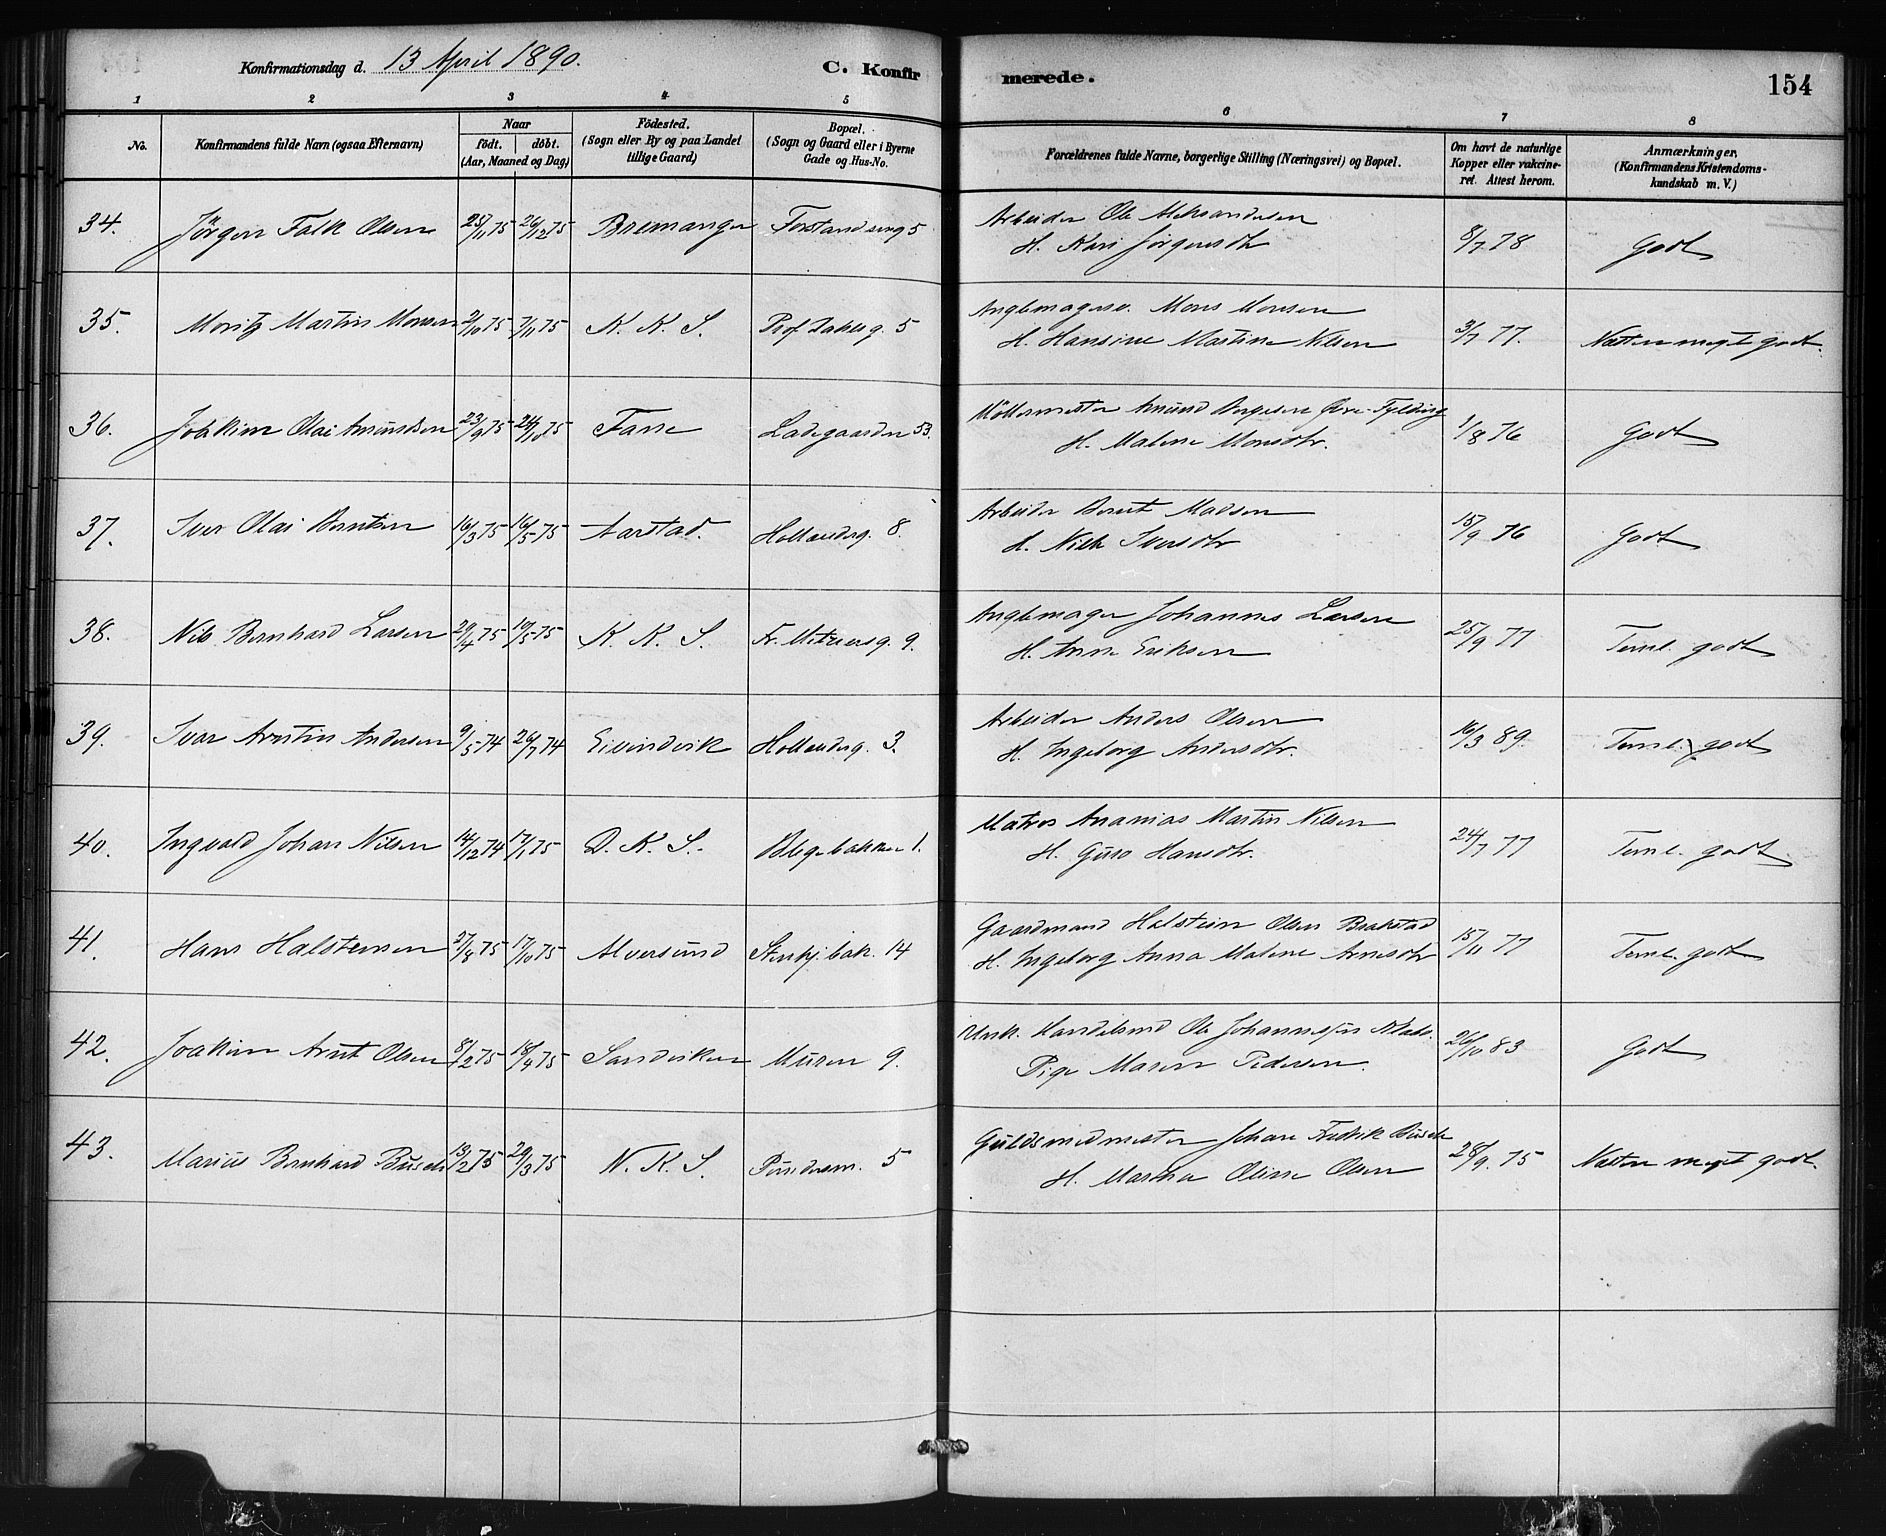 Konfirmationsdag d. 13 April 1890. C. Konfirmerede. 154
1 2 3 4 5 6 7 8
No. Konfirmandens fulde Navn (ogsaa Efternavn) Naar födt. döbt. (Aar, Maaned og Dag) Födested. (Sogn eller By og paa Landet tillige Gaard) Bopæl. (Sogn og Gaard eller i Byerne Gade og Hus-No. Forældrenes fulde Navne, borgerlige Stilling (Næringsvei) og Bopæl. Om havt de naturlige Kopper eller vakcineret. Attest herom. Anmærkninger. (Konfirmandens Kristendomskundskab m. V.)
34. Jörgen Falk Olsen 25/11 75 26/12 75 Bremanger Forstandersmg 5 Arbeider Ole Aleksandersen
H. Kari Jörgensdtr 8/7 78 Godt
35. Moritz Martin Monsen 2/10 75 7/11 75 K. K. S. Prof. Dahls g. 5 Anglemagersv. Mons Monsen
H. Hansine Martine Nilsen 3/7 77. Næsten meget godt.
36. Joakim Olai Amundsen 23/9 75 24/10 75 Fane Ladegaarden 53. Möllermester Amund
H. Malene Monsdtr. 1/8 76 Godt
37. Iver Olai Berntsen 16/3 75 16/5 75 Aarstad. Hollenderg. 8. Arbeider Bernt Madsen
H. Nille Iversdtr 15/9 76 Godt
38. Nils Bernhard Larsen 29/4 75 19/5 75 K. K. S. Fr. Meltzersg. 9. Anglemager Johannes Larsen
H. Anna Eriksen 25/9 77 Teml. godt
39. Ivar Arntin Andersen 9/5 74 26/7 74 Eivindvik Hollenderg. 3. Arbeider Anders Olsen
H. Ingeborg Andersdtr. 16/3 89. Teml. godt
40. Ingvald Johan Nilsen 14/12 74 17/1 75 D. K. S. Blegebakken 1. Matros Ananias Martin Nilsen
H. Guro Hansdtr. 24/7 77 Teml. godt
41. Hans Halstensen 27/8 75 17/10 75 Alversund Stenkjbak. 14 Gaardmand Halstein Olsen Brakstad
H. Ingeborg Anna Malene Arnesdtr 15/11 77 Teml. godt
42. Joakim Arnt Olsen 8/2 75 18/4 75 Sandviken Muren 9. Unk. Handelsmd Ole Johannessen
Pige Maren Pedersen. 26/10 83 Godt
43. Marius Bernhard Busch 13/2 75 29/3 75 N. K. S. 5 Guldsmedmester Johan Fredrik Busch
H. Martha Oline Olsen 28/9. 75 Næsten meget godt.